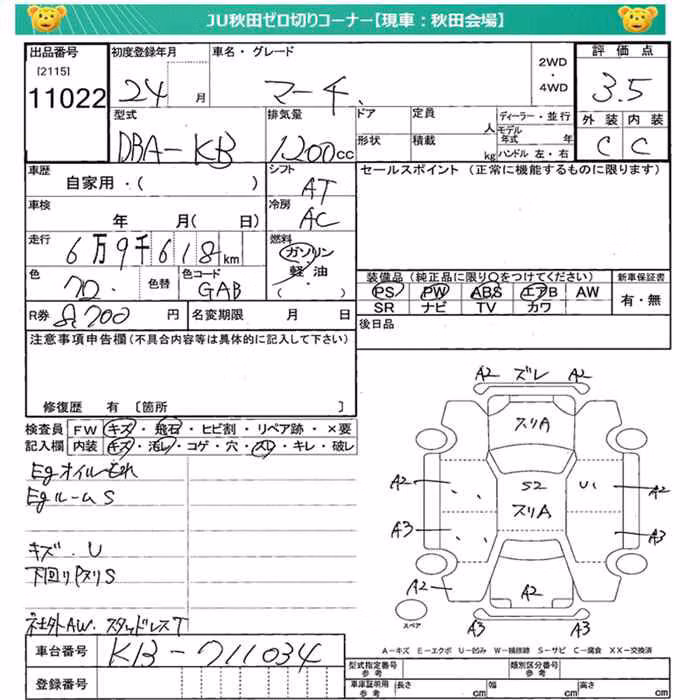 JU秋田ゼロ切りコーナー【現車:秋田会場】
出品番号 初度登録年月 車名・グレード 2WD・4WD 評価点
[2115]
11022 24 月 マーチ 3.5
型式 排気量 ドア 定員 人 ディーラー・並行 外装 内装
DBA-KB 1200cc 形状 積載 kg モデル年式 年 C C
ハンドル 左・右
車歴 シフト セールスポイント (正常に機能するものに限ります)
自家用・( ) AT
車検 冷房
年 月( 日) AC
走行 燃料
6万9千618km ガソリン・軽油
( )
色 色替 色コード 装備品(純正品に限り○をつけてください) 新車保証書
GAB PS PW ABS エアB AW 有・無
SR ナビ TV カワ
R券 8,700 円 名変期限 月 日 後日品
注意事項申告欄(不具合内容等は具体的に記入して下さい)
修復歴 有 〔箇所 〕
検査員記入欄 FW キズ・飛石・ヒビ割・リペア跡・×要
内装 キズ・汚レ・コゲ・穴・スレ・キレ・破レ
Egオイルもれ
EgルームS
キズ・U
下回りパスリS
社外AW. スタッドレスT
A2 ズレ A2
スリA
A2 S2 U1 A2
スリA
A3 A3
A2 A2
A3 A3
スペア
A-キズ E-エクボ U-凹み W-補修跡 S-サビ C-腐食 XX-交換済
車台番号 KB-711034
登録番号
型式指定番号 参考 類別区分番号 参考
車庫証明用 参考 長さ cm 幅 cm 高さ cm